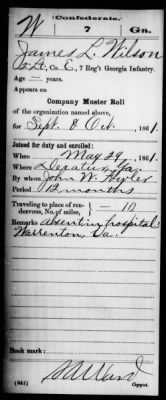 (Confederate.)
W 7 Ga.
James L. Wilson
Co. E, 7 Reg't Georgia Infantry.
Age — years.
Appears on
Company Muster Roll
of the organization named above,
for Sept & Oct, 1861.
Joined for duty and enrolled:
When May 29, 1861.
Where Decatur, Ga.
By whom John W. Fowler
Period 12 months
Traveling to place of ren-
dezvous, No. of miles, — 10
Remarks absent in hospital
Warrenton, Va.
Book mark:
(641) Copyist.